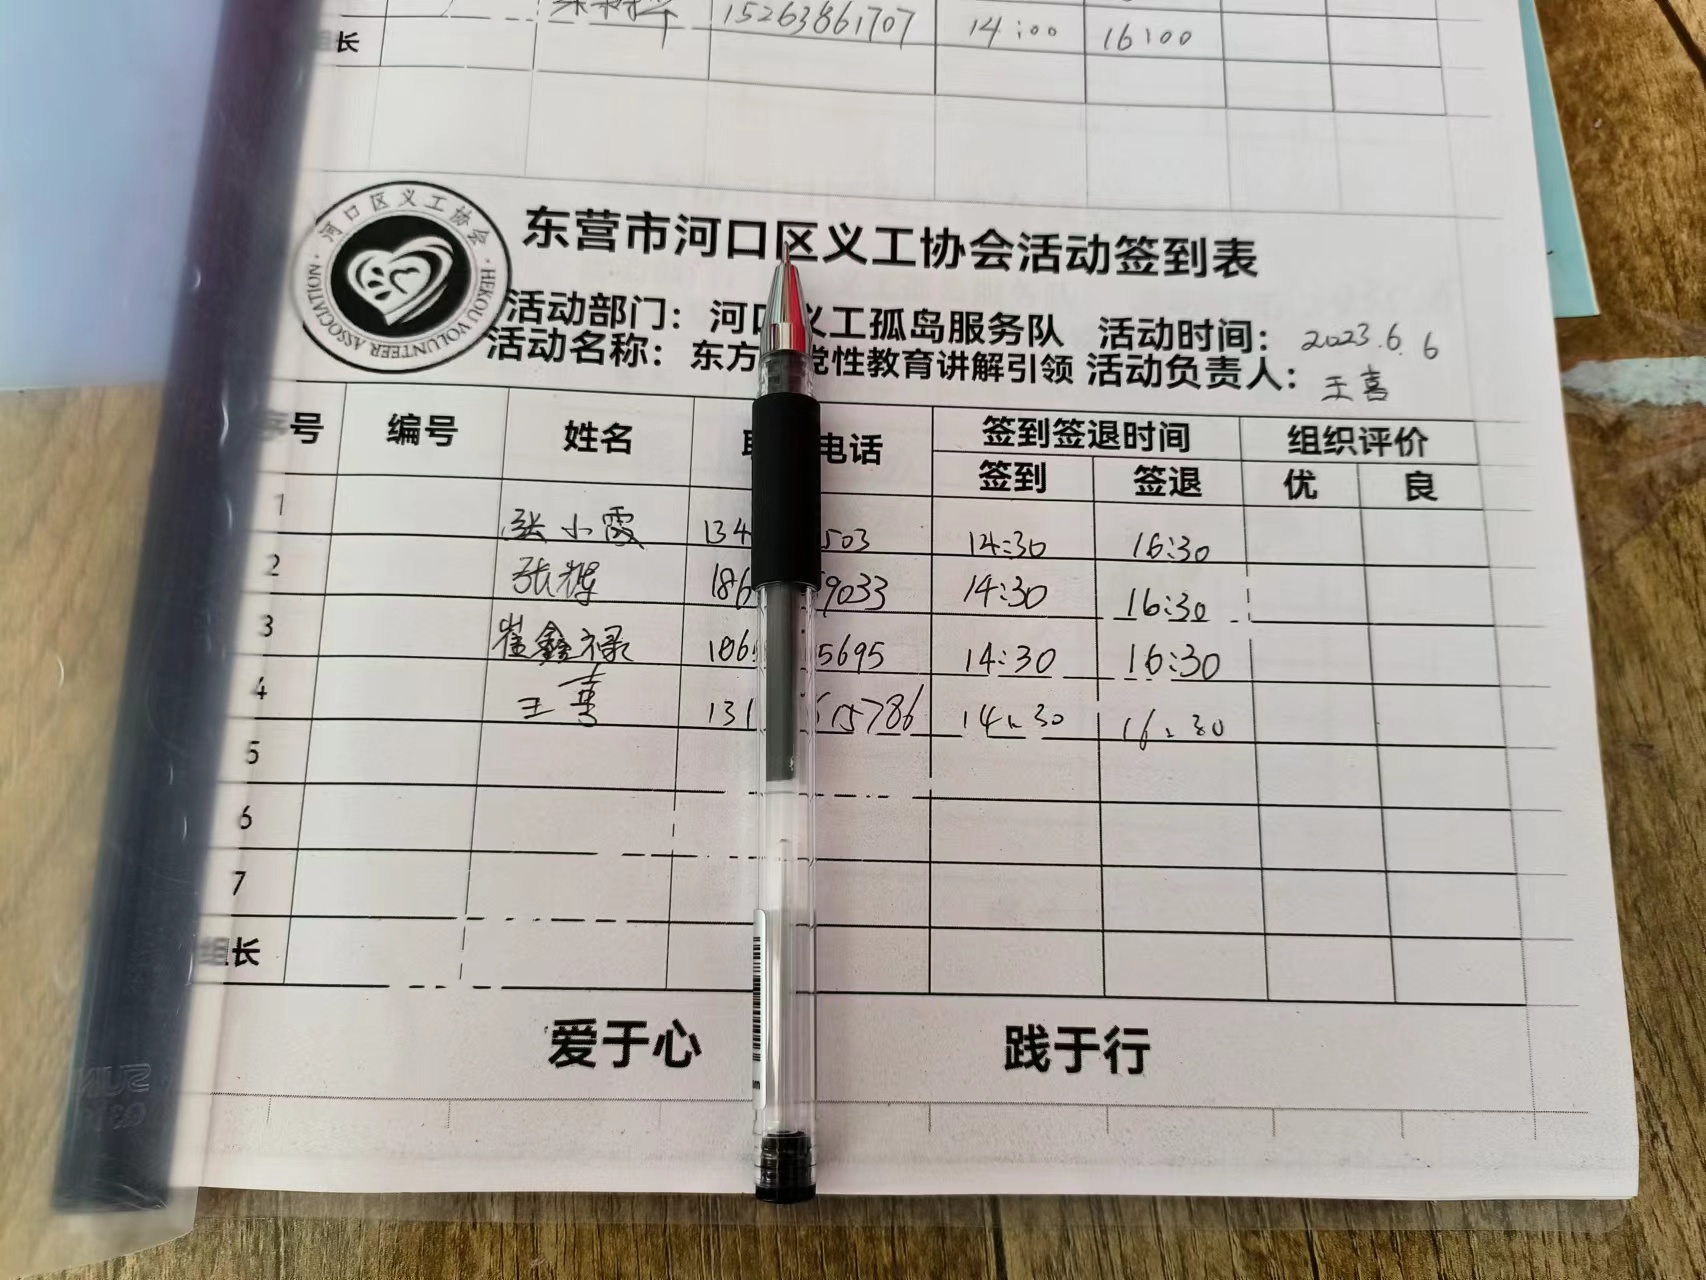 15263861707 14:00 16:00
组长
河口区义工协会
HEKOU VOLUNTEER ASSOCIATION
东营市河口区义工协会活动签到表
活动部门：河口义工孤岛服务队 活动时间：2023.6.6
活动名称：东方 党性教育讲解引领 活动负责人：王喜
序号 编号 姓名 电话 签到签退时间 组织评价
签到 签退 优 良
1 张小霞 134 503 14:30 16:30
2 张辉 186 9033 14:30 16:30
3 崔鑫禄 186 5695 14:30 16:30
4 王喜 131 15786 14:30 16:30
5
6
7
组长
爱于心 践于行